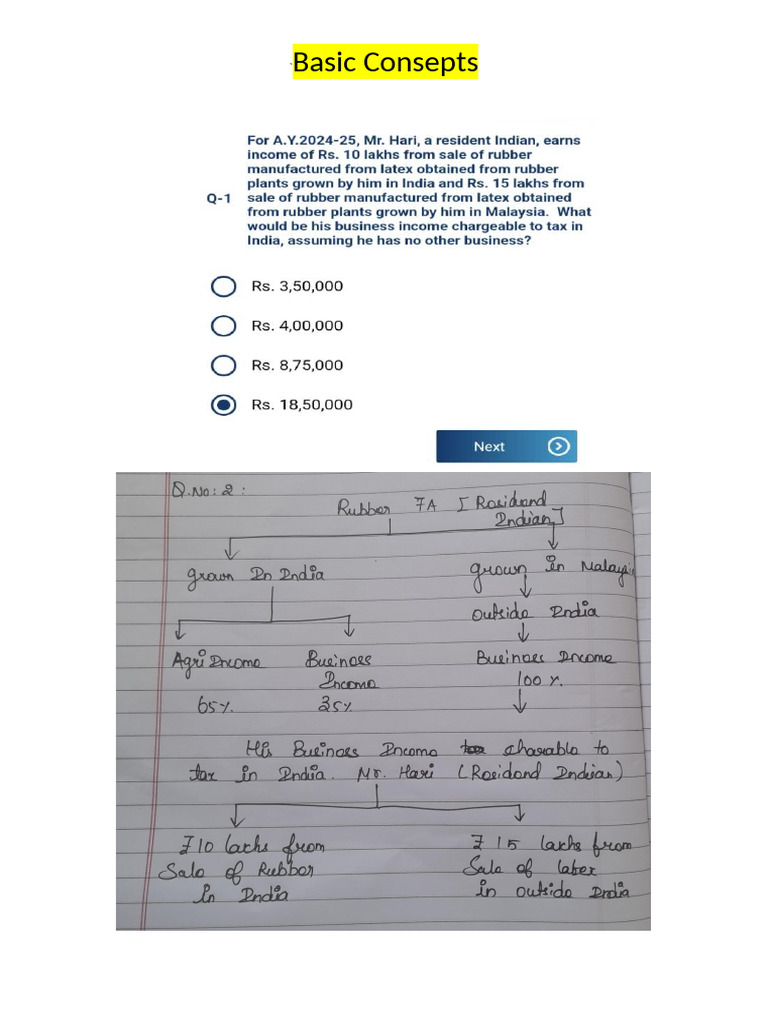 Basic Consepts
For A.Y.2024-25, Mr. Hari, a resident Indian, earns
income of Rs. 10 lakhs from sale of rubber
manufactured from latex obtained from rubber
plants grown by him in India and Rs. 15 lakhs from
Q-1 sale of rubber manufactured from latex obtained
from rubber plants grown by him in Malaysia. What
would be his business income chargeable to tax in
India, assuming he has no other business?
Rs. 3,50,000
Rs. 4,00,000
Rs. 8,75,000
Rs. 18,50,000
Next
Q.No: 2 :
Rubber 7A [Residand
Indian]
grown In India
grown in Malaysi
outside India
Agri Income
Business
Income
Business Income
65%.
35%
100 %.
His Business Income charable to
tax in India. Mr. Hari (Residand Indian)
₹10 lachs from
Sale of Rubber
in India
₹ 15 lachs from
Sale of latex
in outside India